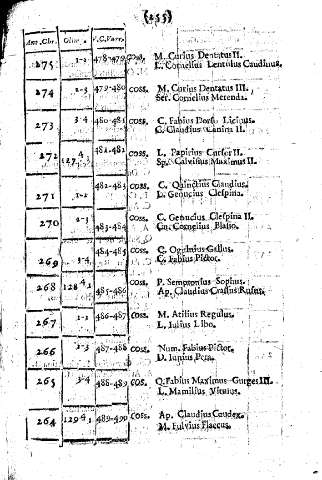 (255)
Ant. Chr. Olim. V.C. Varr.
275 1-2 478-479 Coss. M. Curius Dentatus II.
L. Cornelius Lentulus Caudinus.
274 2-3 479-480 COSS. M. Curius Dentatus III.
Ser. Cornelius Merenda.
273 3-4 480-481 COSS. C. Fabius Dorso Licinus.
C. Claudius Canina II.
272 4 481-482 COSS. L. Papirius Cursor II.
127, 1 Sp. Calvisius Maximus II.
482-483 COSS. C. Quinctius Claudius.
271 1-2 L. Genucius Clespina.
270 2-3 483-484 COSS. C. Genucius Clespina II.
Cn. Cornelius Blasio.
484-485 COSS. C. Ogulnius Gallus.
269 3-4 C. Fabius Pictor.
268 128 4, 1 485-486 COSS. P. Sempronius Sopius.
Ap. Claudius Crassus Rufus.
267 1-2 486-487 COSS. M. Atilius Regulus.
L. Iulius Libo.
266 2-3 487-488 COSS. Num. Fabius Pictor.
D. Iunius Pera.
265 3-4 488-489 COSS. Q. Fabius Maximus Gurges III.
L. Mamilius Vitulus.
264 129 4, 1 489-490 COSS. Ap. Claudius Caudex.
M. Fulvius Flaccus.